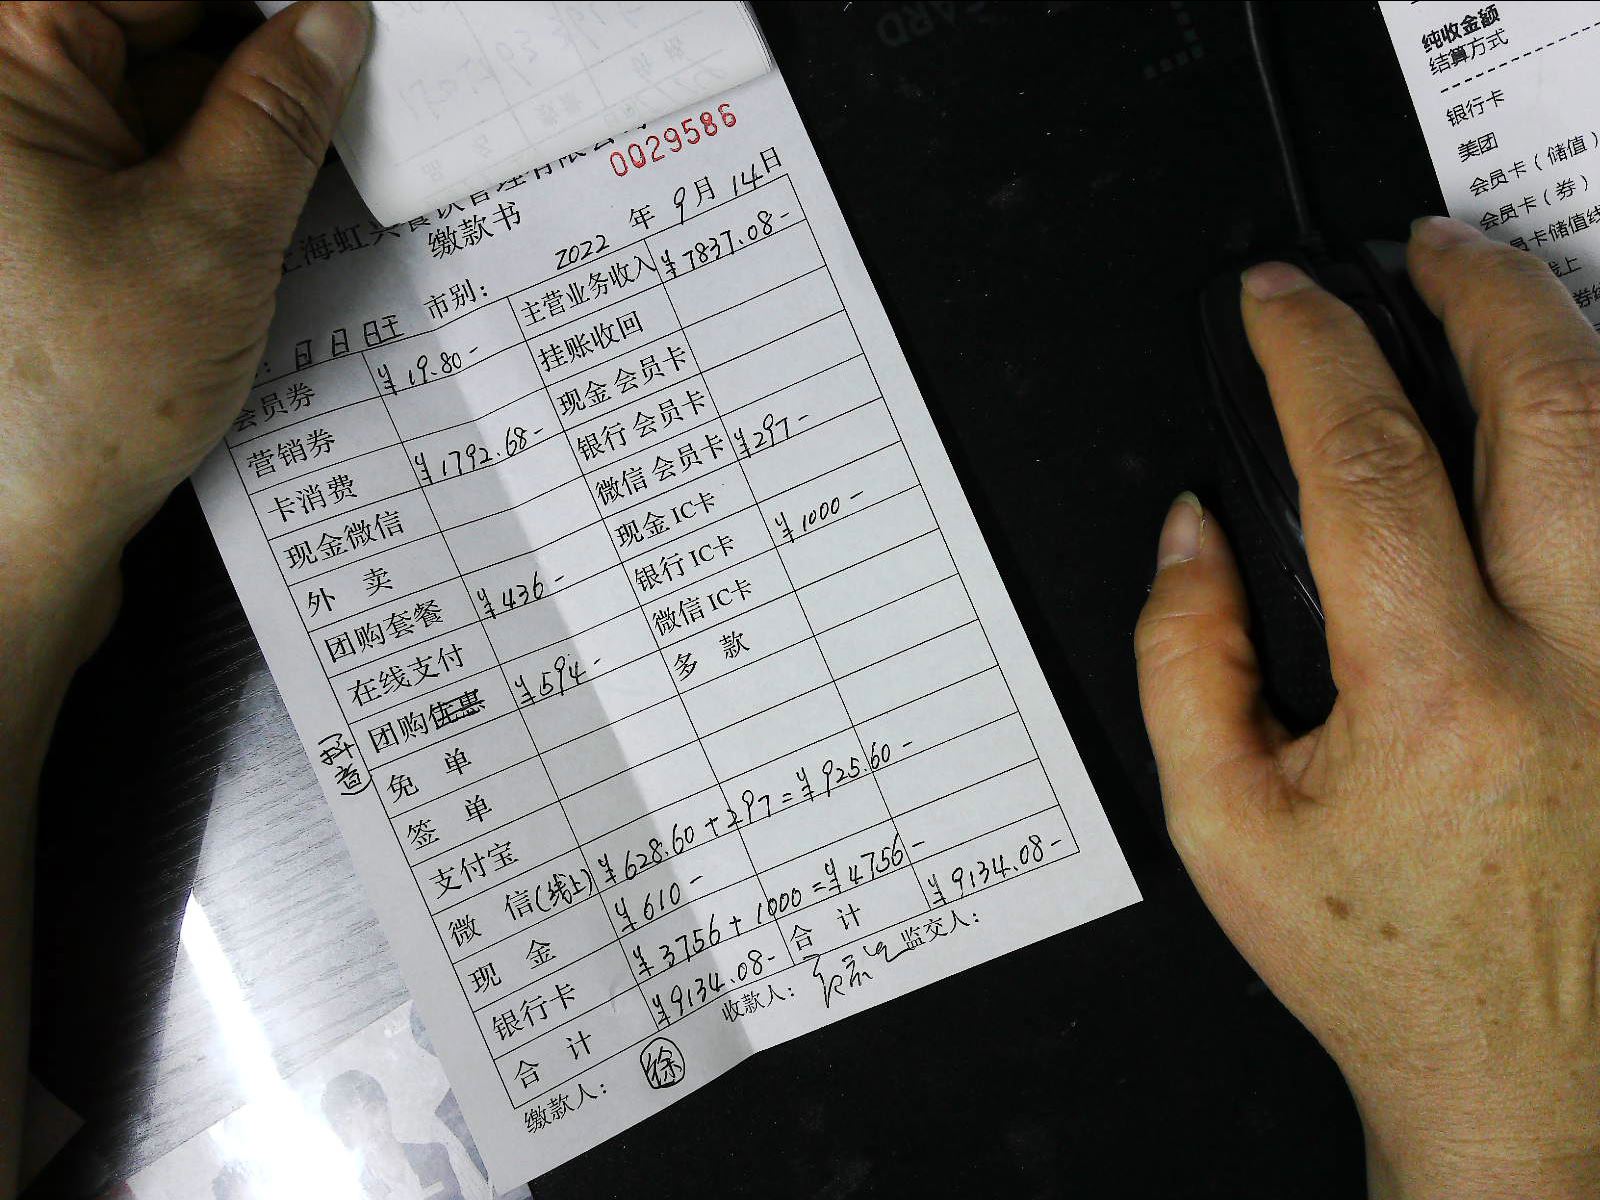 0029586
上海虹兴餐饮管理有限公司
缴款书
2022 年 9 月 14 日
市别：
会员券 ¥19.80- 主营业务收入 ¥7837.08-
营销券 挂账收回
卡消费 ¥1792.68- 现金会员卡
现金微信 银行会员卡
外 卖 微信会员卡 ¥297-
团购套餐 ¥436- 现金IC卡
在线支付 银行IC卡 ¥1000-
团购 ¥594- 微信IC卡
(抖音)
免 单 多 款
签 单
支付宝
微 信(线上) ¥628.60+297=¥925.60-
现 金 ¥610-
银行卡 ¥3756+1000=¥4756-
合 计 ¥9134.08- 合 计 ¥9134.08-
缴款人： 徐 收款人： 监交人：
纯收金额
结算方式
银行卡
美团
会员卡（储值）
会员卡（券）
员卡储值线
线上
券线